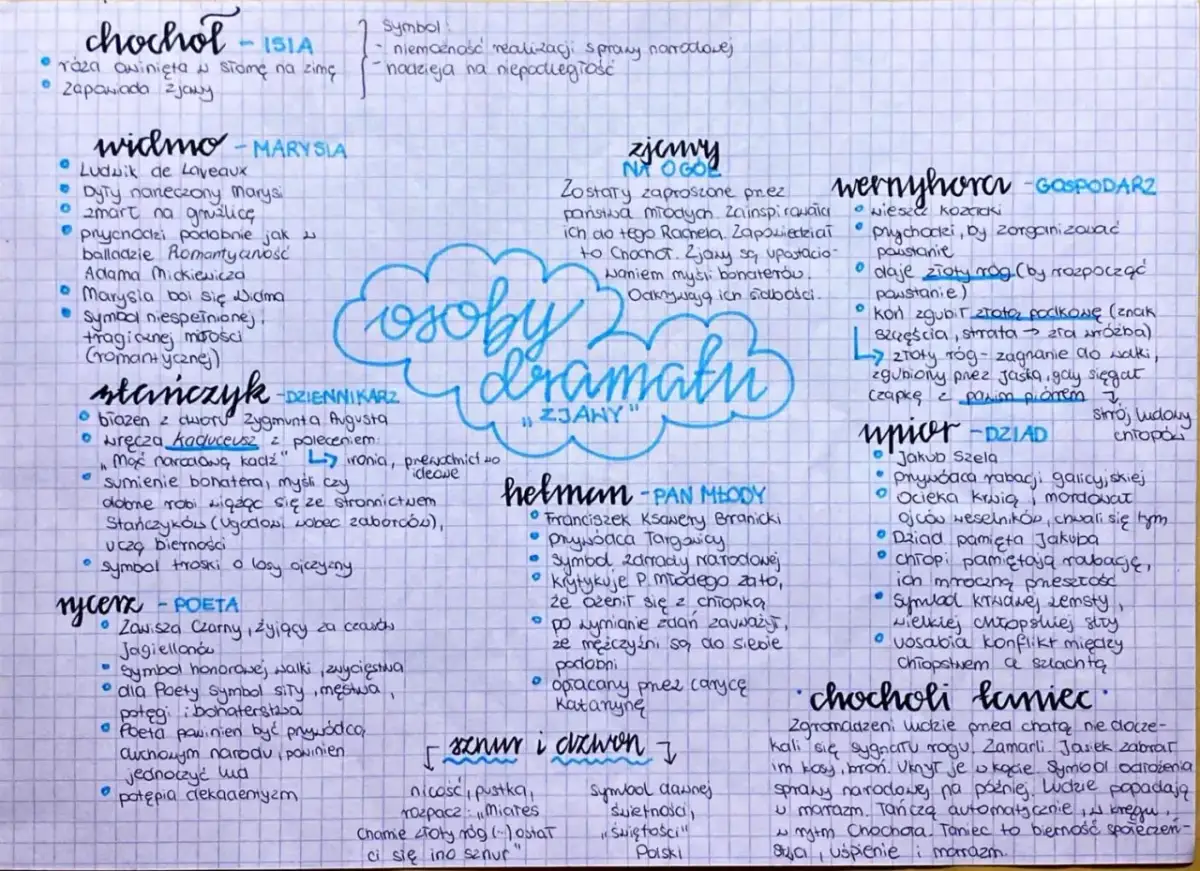 chochoł - ISIA
• róża owinięta w słomę na zimę
• zapowiada zjawy
symbol:
- niemożność realizacji sprawy narodowej
- nadzieja na niepodległość
widmo - MARYSIA
• Ludwik de Laveaux
• były narzeczony Marysi
• zmarł na gruźlicę
• przychodzi podobnie jak w
balladzie Romantyczność
Adama Mickiewicza
• Marysia boi się Widma
• symbol niespełnionej,
tragicznej miłości
(romantycznej)
zjawy
NA OGÓŁ
Zostały zaproszone przez
państwa młodych. Zainspirowała
ich do tego Rachela. Zapowiedział
to Chochoł. Zjawy są upostacio-
waniem myśli bohaterów.
Odkrywają ich słabości.
wernyhora - GOSPODARZ
• wieszcz kozacki
• przychodzi, by zorganizować
powstanie
• daje złoty róg (by rozpocząć
powstanie)
• koń zgubił złotą podkowę (znak
szczęścia, strata → zła wróżba)
↳ złoty róg - zagrzanie do walki,
zgubiony przez Jaśka, gdy sięgał
czapkę z pawim piórem
↓
strój ludowy
chłopów
osoby
dramatu
"ZJAWY"
stańczyk - DZIENNIKARZ
• błazen z dworu Zygmunta Augusta
• wręcza kaduceusz z poleceniem:
"Mąć narodową kadź" ↳ ironia, przewodnictwo
ideowe
• sumienie bohatera, myśli czy
dobrze robi wiążąc się ze stronnictwem
Stańczyków (ugodowi wobec zaborców),
uczą bierności
• symbol troski o losy ojczyzny
hetman - PAN MŁODY
• Franciszek Ksawery Branicki
• przywódca Targowicy
• symbol zdrady narodowej
• krytykuje P. Młodego za to,
że ożenił się z chłopką
• po wymianie zdań zauważył,
że mężczyźni są do siebie
podobni
• opłacany przez carycę
Katarzynę
upiór - DZIAD
• Jakub Szela
• przywódca rabacji galicyjskiej
• Ocieka krwią, mordował
ojców weselników, chwali się tym
• Dziad pamięta Jakuba
• chłopi pamiętają rabację,
ich mroczną przeszłość
• symbol krwawej zemsty,
wielkiej chłopskiej siły
• uosabia konflikt między
chłopstwem a szlachtą
rycerz - POETA
• Zawisza Czarny, żyjący za czasów
Jagiellonów
• symbol honorowej walki, zwycięstwa
• dla Poety symbol siły, męstwa,
potęgi i bohaterstwa
• Poeta powinien być przywódcą
duchowym narodu, powinien
jednoczyć lud
• potępia dekadentyzm
sznur i dzwon
nicość, pustka,
rozpacz: "Miałeś
Chamie złoty róg (~) ostał
ci się ino sznur"
symbol dawnej
świetności,
"świętości"
Polski
• chocholi taniec •
Zgromadzeni ludzie przed chatą nie docze-
kali się sygnału rogu. Zamarli. Jasiek zabrał
im kosy, broń. Ukrył je w kącie. Symbol odłożenia
sprawy narodowej na później. Ludzie popadają
w marazm. Tańczą automatycznie, w kręgu,
w rytm Chochoła. Taniec to bierność społeczeń-
stwa, uśpienie i marazm.